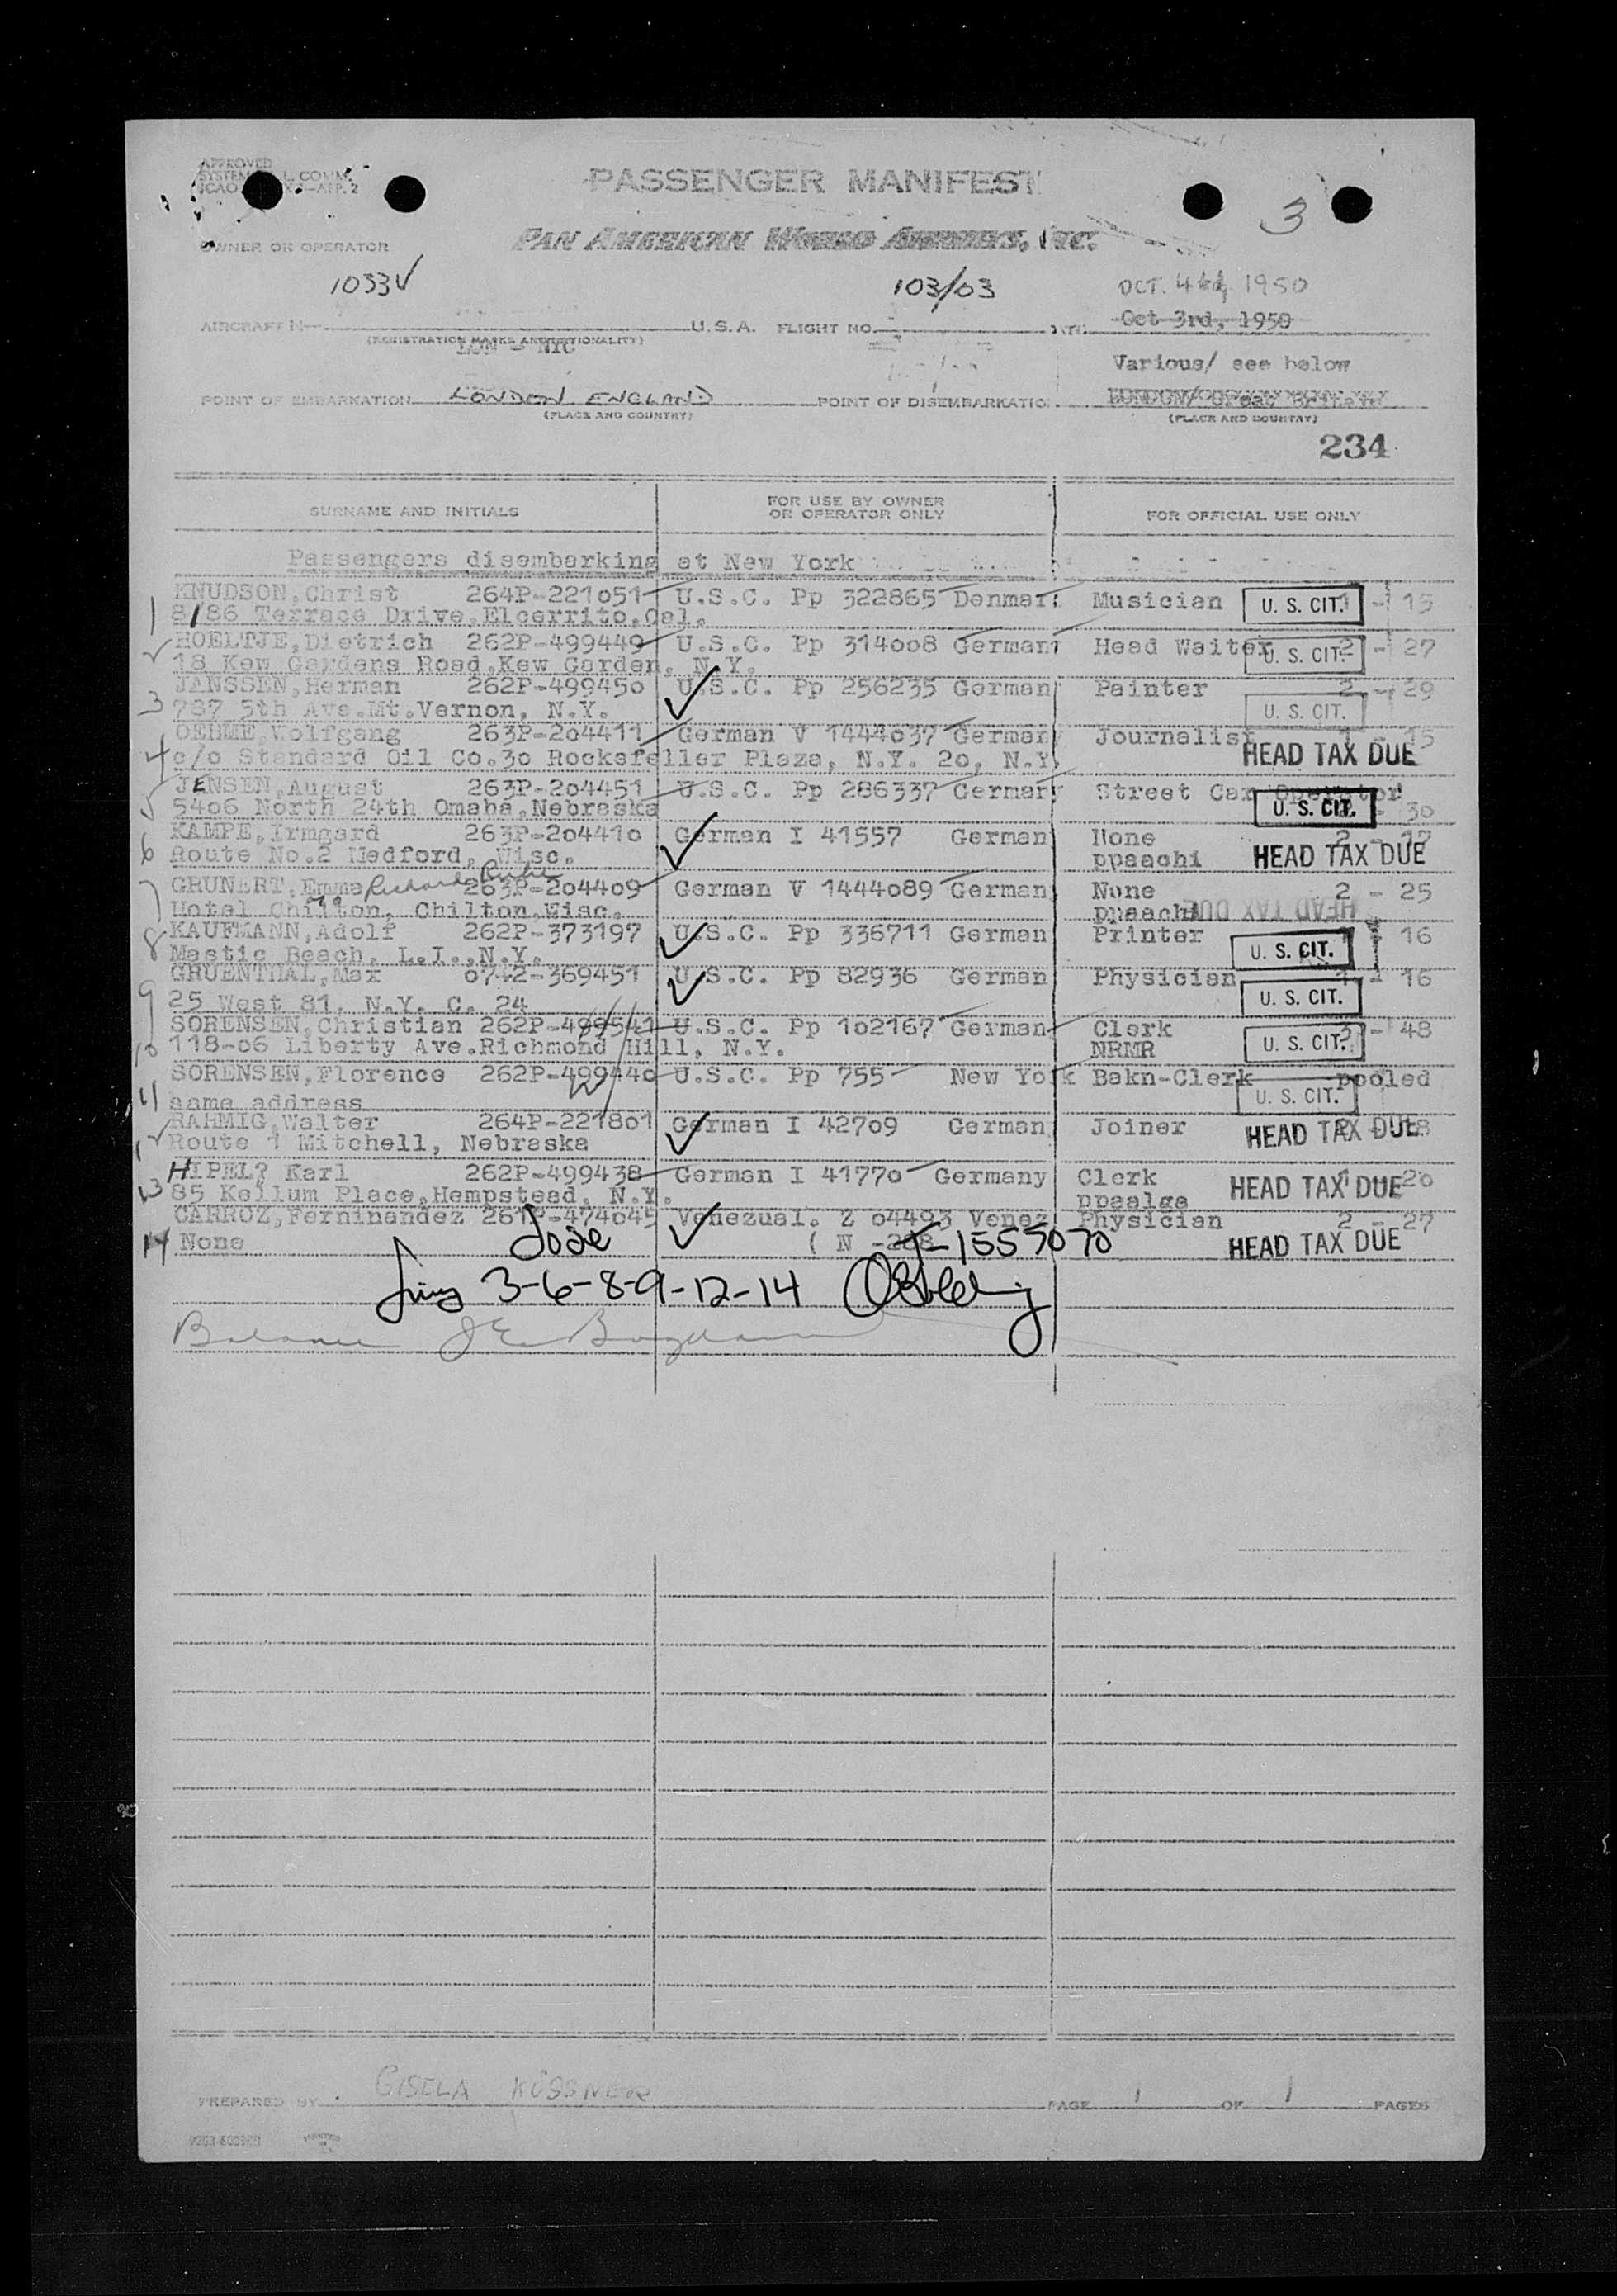 APPROVED
PASSENGER MANIFEST
3
OWNER OR OPERATOR
PAN AMERICAN WORLD AIRWAYS, INC.
1033V 103/03 OCT. 4th, 1950
AIRCRAFT N— U.S.A. FLIGHT NO. Oct 3rd, 1950
(REGISTRATION MARKS AND NATIONALITY)
LON - NYC
Various/ see below
POINT OF EMBARKATION LONDON ENGLAND POINT OF DISEMBARKATION
(PLACE AND COUNTRY) (PLACE AND COUNTRY)
234
SURNAME AND INITIALS FOR USE BY OWNER OR OPERATOR ONLY FOR OFFICIAL USE ONLY
Passengers disembarking at New York
KNUDSON,Christ 264P-221051 U.S.C. Pp 322865 Denmar Musician U. S. CIT. 1 - 15
1 8/86 Terrace Drive,Elcerrito,Cal.
HOELTJE,Dietrich 262P-499449 U.S.C. Pp 314008 German Head Waiter U. S. CIT. 2 - 27
18 Kew Gardens Road,Kew Garden, N.Y.
JANSSEN,Herman 262P-499450 U.S.C. Pp 256235 German Painter 2 - 29
3 787 5th Ave.Mt.Vernon, N.Y. U. S. CIT.
OEHME,Wolfgang 263P-204411 German V 1444037 German Journalist 1 - 15
4 c/o Standard Oil Co.30 Rockefeller Plaza, N.Y. 20, N.Y. HEAD TAX DUE
JENSEN,August 263P-204451 U.S.C. Pp 286337 German Street Car Operator
5 5406 North 24th Omaha,Nebraska U. S. CIT. - 30
KAMPE,Irmgard 263P-204410 German I 41557 German None 2 - 17
6 Route No.2 Medford, Wisc. ppaachi HEAD TAX DUE
GRUNERT,Emma Richard 263P-204409 German V 1444089 German None 2 - 25
7 Hotel Chilton, Chilton,Wisc. ppaachi HEAD TAX DUE
KAUFMANN,Adolf 262P-373197 U.S.C. Pp 336711 German Printer - 16
8 Mastic Beach, L.I.,N.Y. U. S. CIT.
GRUENTHAL,Max 0742-369451 U.S.C. Pp 82936 German Physician 1 - 16
9 25 West 81, N.Y. C. 24 U. S. CIT.
SORENSEN,Christian 262P-499541 U.S.C. Pp 102167 German Clerk - 48
10 118-06 Liberty Ave.Richmond Hill, N.Y. NRMR U. S. CIT.
SORENSEN,Florence 262P-499440 U.S.C. Pp 755 New York Bakn-Clerk pooled
11 same address U. S. CIT.
RAHMIG,Walter 264P-221801 German I 42709 German Joiner
Route 1 Mitchell, Nebraska HEAD TAX DUE
HIPEL? Karl 262P-499438 German I 41770 Germany Clerk 1 - 20
13 85 Kellum Place,Hempstead, N.Y. ppaalga HEAD TAX DUE
CARROZ,Ferninandez 261P-474045 Venezual. Z 04493 Venez Physician 2 - 27
14 None Jose ( N -288 T-1555070 HEAD TAX DUE
3-6-8-9-12-14
Balance
PREPARED BY GISELA KÜSSNER PAGE 1 OF 1 PAGES